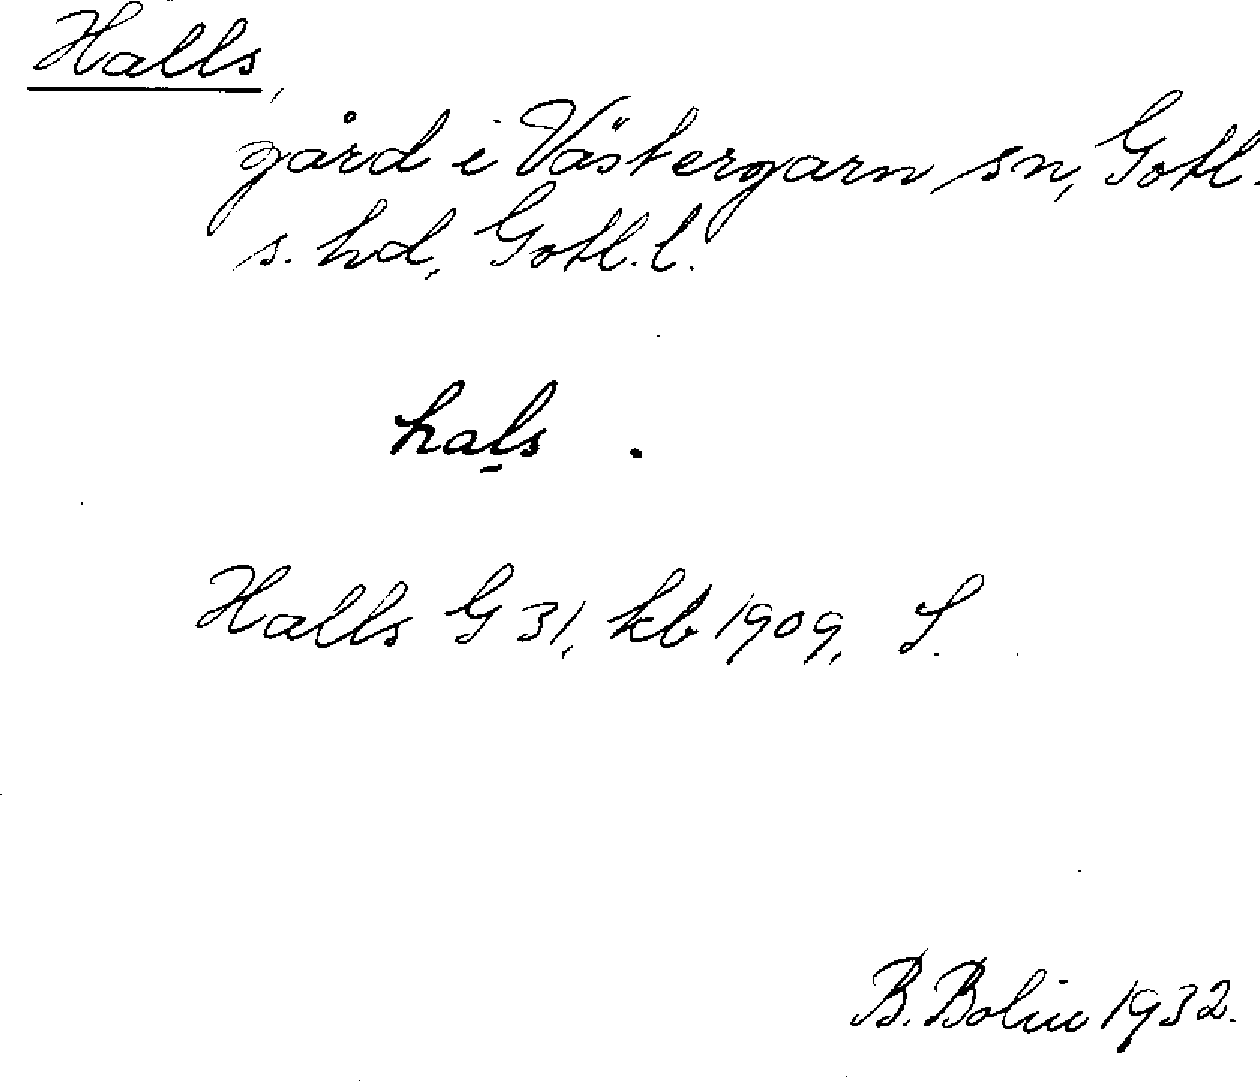 Halls,
gård i Västergarn sn, Gotl.
s. hd, Gotl. l.
hal̠s .
Halls G 31, kb 1909, S.
B. Bolin 1932.